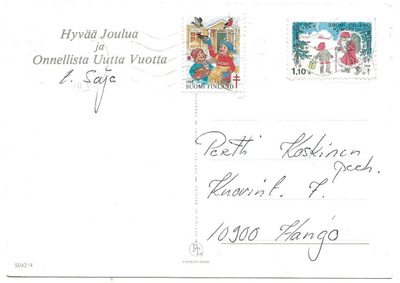 Hyvää Joulua
ja
Onnellista Uutta Vuotta
SUOMI FINLAND
SUOMI FINLAND
1,10
Pertti Koskinen
10900 Hangö
5042/4